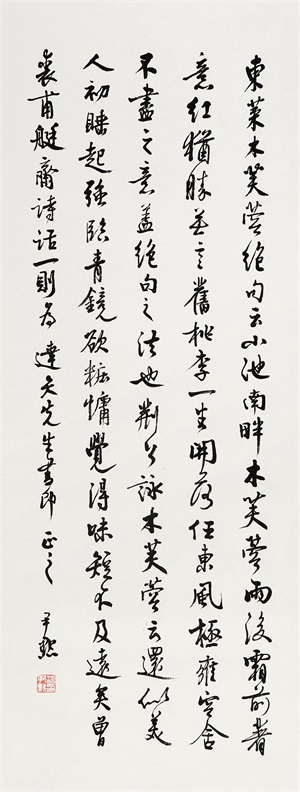 東萊木芙蓉絕句云小池南畔木芙蓉雨後霜前著
意紅猶勝無言舊桃李一生開落任東風極雍容含
不盡之意蓋絕句之法也荊公詠木芙蓉云還似美
人初睡起強臨青鏡欲粧慵覺得味短不及遠矣曾
裘甫艇齋詩話一則為達先生書即正之
尹默